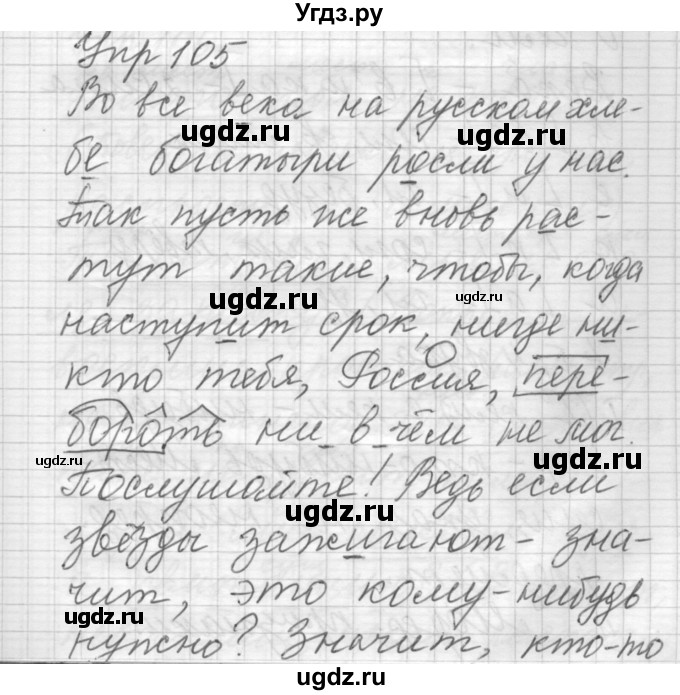 Угдз.ру
Упр 105
Во все века на русском хле-
ugdz.ru
ugdz.ru
бе богатыри росли у нас.
Так пусть же вновь рас-
тут такие, чтобы, когда
ugdz.ru
ugdz.ru
наступит срок, нигде ни-
кто тебя, Россия, пере-
бороть ни в чём не мог.
ugdz.ru
ugdz.ru
Послушайте! Ведь если
ugdz.ru
звёзды зажигают - зна-
чит, это кому-нибудь
ugdz.ru
ugdz.ru
нужно? Значит, кто-то
Угдз.ру